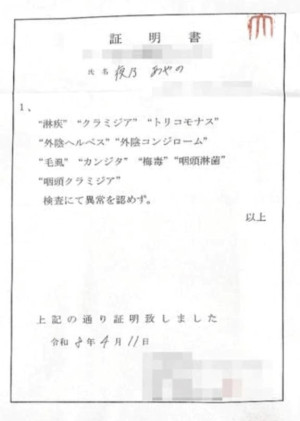 証明書
氏名 優乃 あやの
1、
"淋疾" "クラミジア" "トリコモナス"
"外陰ヘルペス" "外陰コンジローム"
"毛虱" "カンジタ" "梅毒" "咽頭淋菌"
"咽頭クラミジア"
検査にて異常を認めず。
以上
上記の通り証明致しました
令和 8年 4月 11日